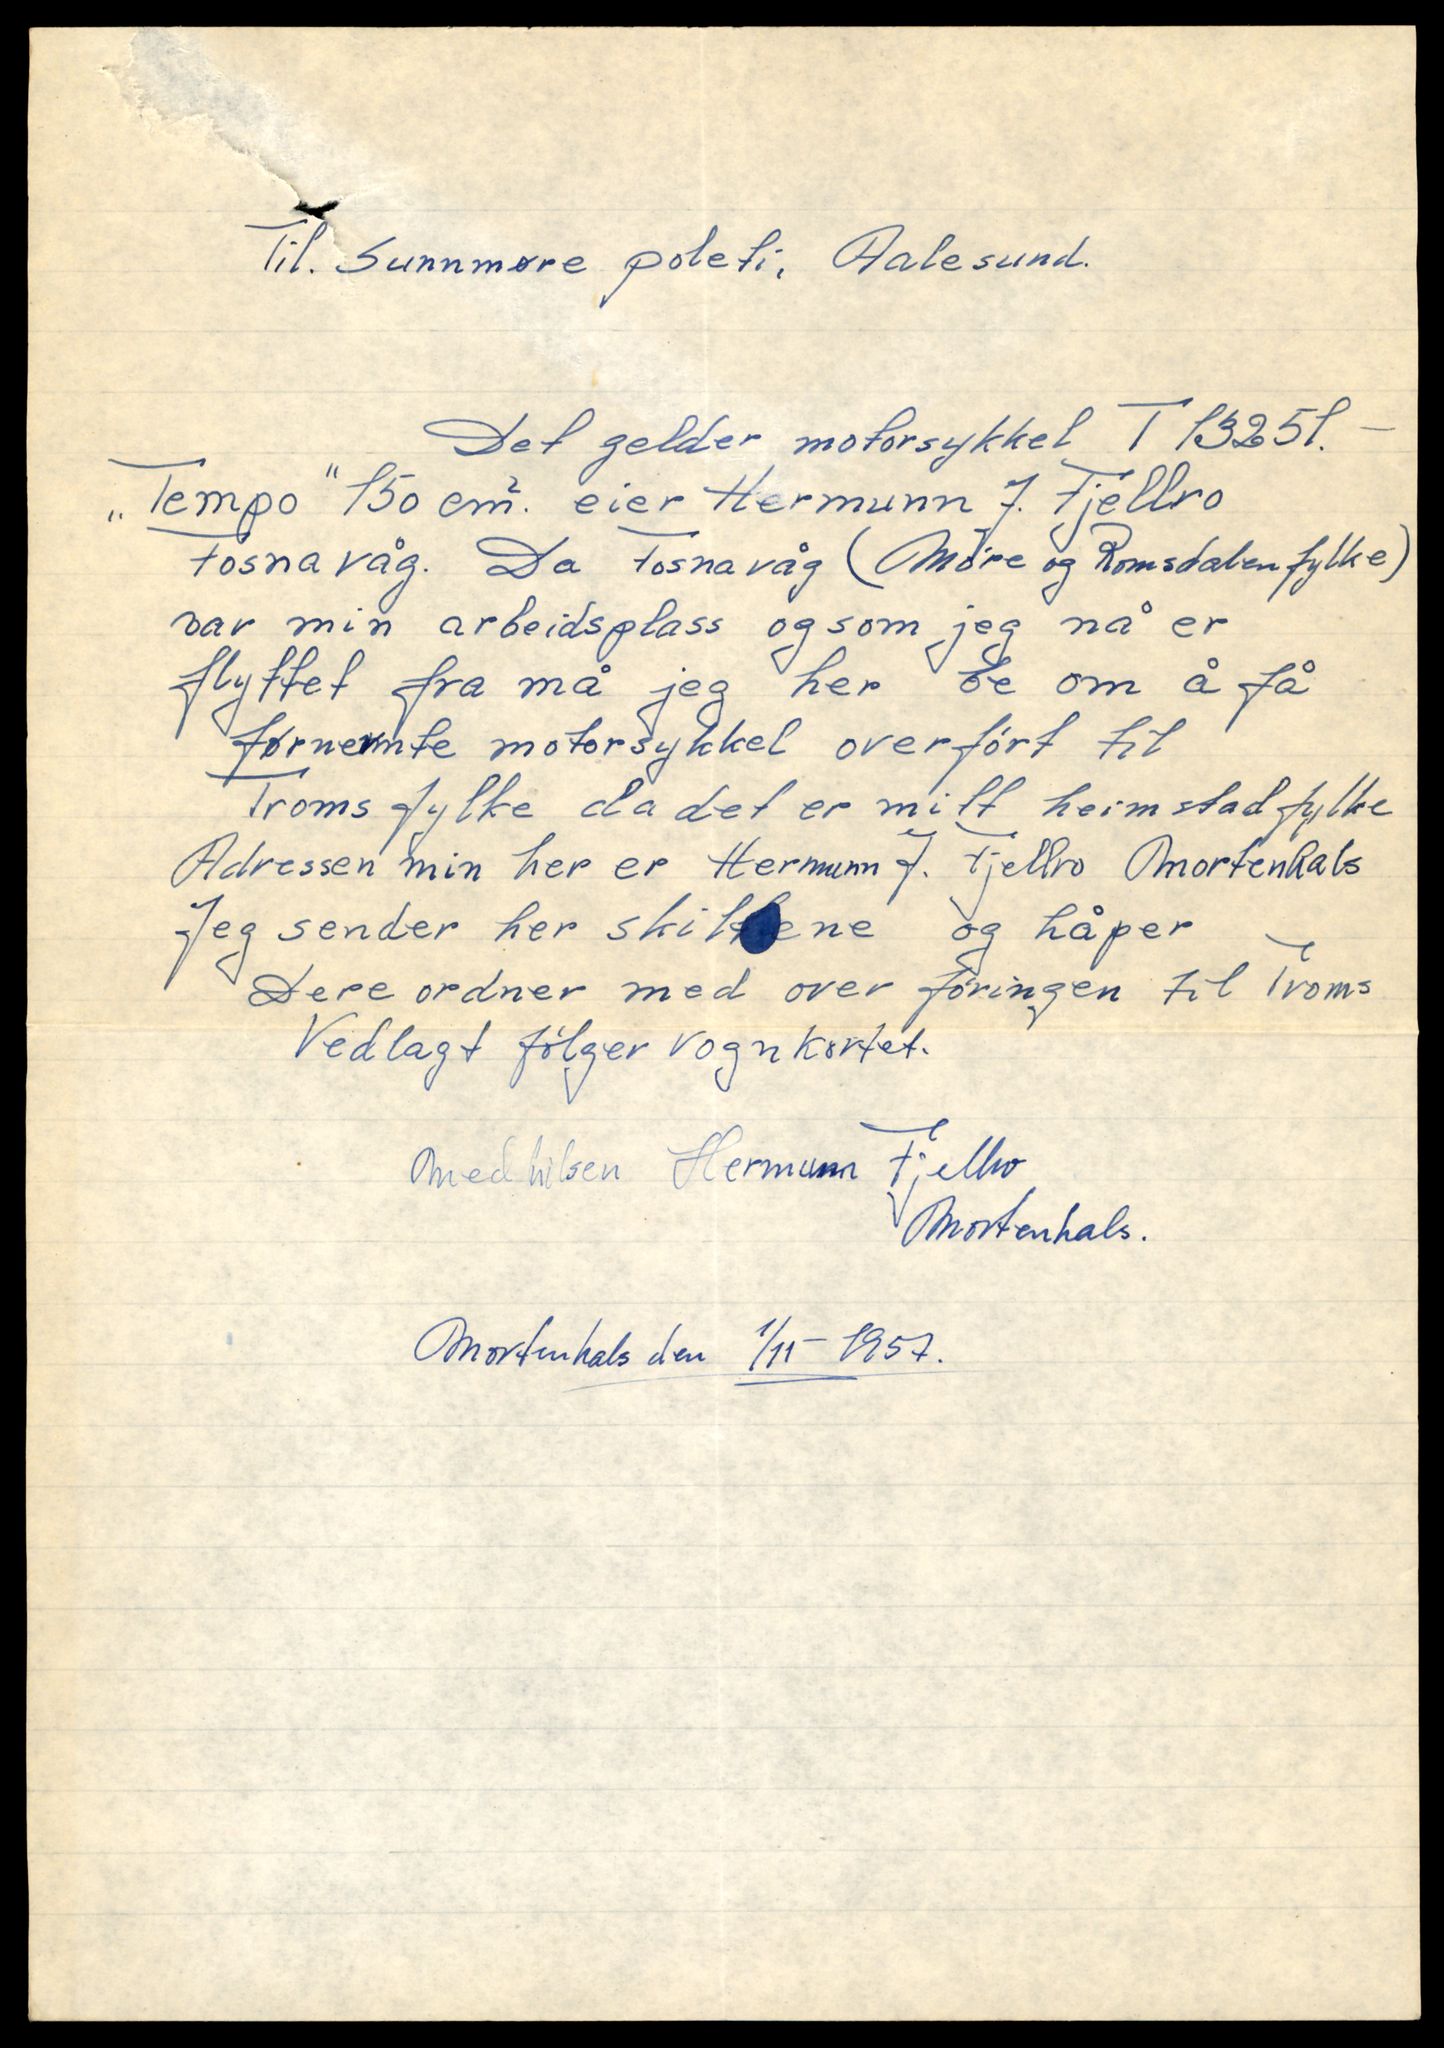 Til. Sunnmøre poleti, Aalesund.
Det gelder motorsykkel T 13251. –
„Tempo" 150 cm². eier Hermunn J. Fjellro
Fosnavåg. Da Fosnavåg (Møre og Romsdalen fylke)
var min arbeidsplass og som jeg nå er
flyttet fra må jeg her be om å få
førnevnte motorsykkel overført til
Troms fylke da det er mitt heimstadfylke
Adressen min her er Hermunn J. Fjellro Mortenhals
Jeg sender her skiltene og håper
Dere ordner med over føringen til Troms
Vedlagt følger vognkortet.
Med hilsen Hermunn Fjellro
Mortenhals.
Mortenhals den 1/11 – 1957.